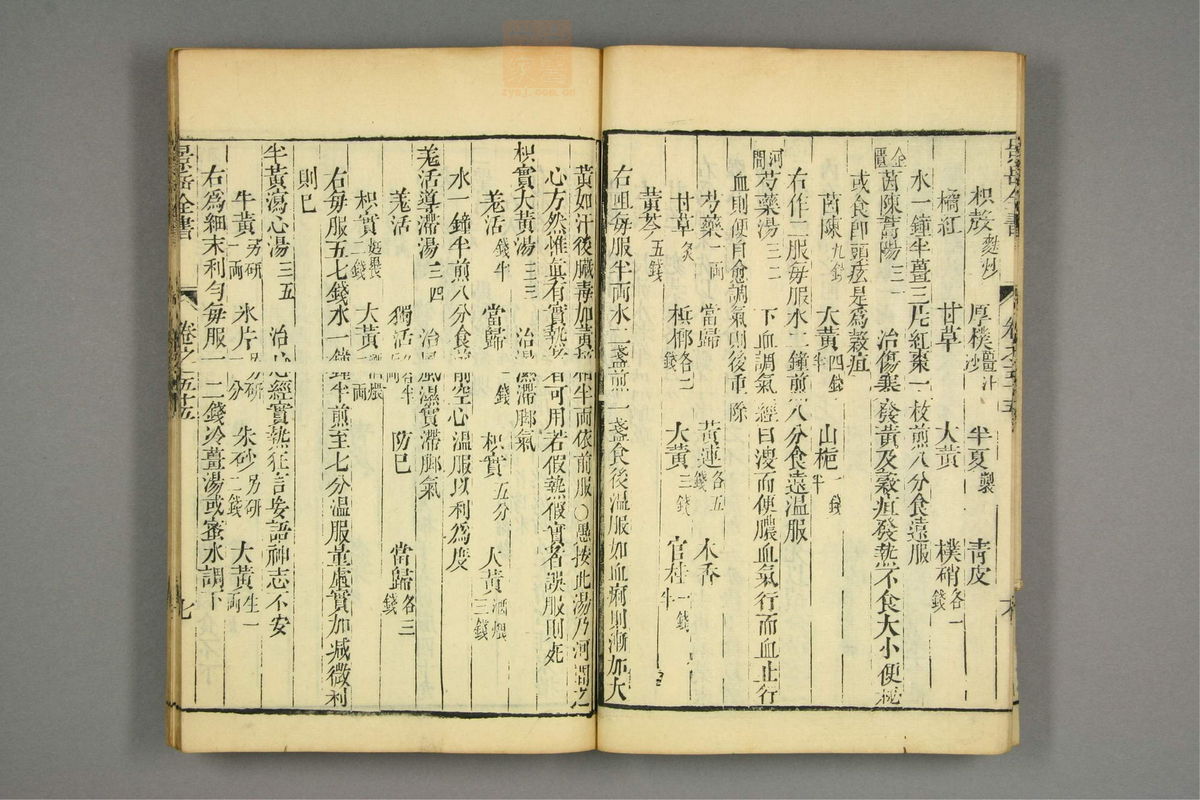 景岳全書
卷之五十五
枳殼麩炒 厚樸薑汁炒 半夏製 青皮
橘紅 甘草 大黃 樸硝各一錢
水一鐘半薑三片紅棗一枚煎八分食遠服
金匱茵陳蒿湯三一 治傷寒發黃及穀疸發熱不食大小便秘
或食即頭眩是為穀疸
茵陳九錢 大黃四錢半 山梔一錢半
右作二服每服水二鐘煎八分食遠溫服
河間芍藥湯三二 下血調氣經曰溲而便膿血氣行而血止行
血則便自愈調氣則後重除
芍藥一兩 當歸 黃連各五錢 木香
甘草炙 檳榔各二錢 大黃三錢 官桂一錢半
黃芩五錢
右㕮每服半兩水二盞煎一盞食後溫服如血痢則漸加大
黃如汗後臟毒加黃栢半兩依前服○愚按此湯乃河間之
心方然惟真有實熱者可用若假熱假實者誤服則死
枳實大黃湯三三 治濕滯脚氣
羗活錢半 當歸一錢 枳實五分 大黃酒煨三錢
水一鐘半煎八分食前空心溫服以利為度
羗活導滯湯三四 治風濕實滯脚氣
羗活 獨活各半 防已 當歸各三錢
枳實麩煨二錢 大黃酒煨一兩
右每服五七錢水一鐘半煎至七分溫服量虛實加减微利
則已
牛黃瀉心湯三五 治心經實熱狂言妄語神志不安
牛黃另研一兩 氷片另研一分 朱砂另研二錢 大黃生一兩
右為細末利勻每服一二錢冷薑湯或蜜水調下
景岳全書
卷之五十五
七